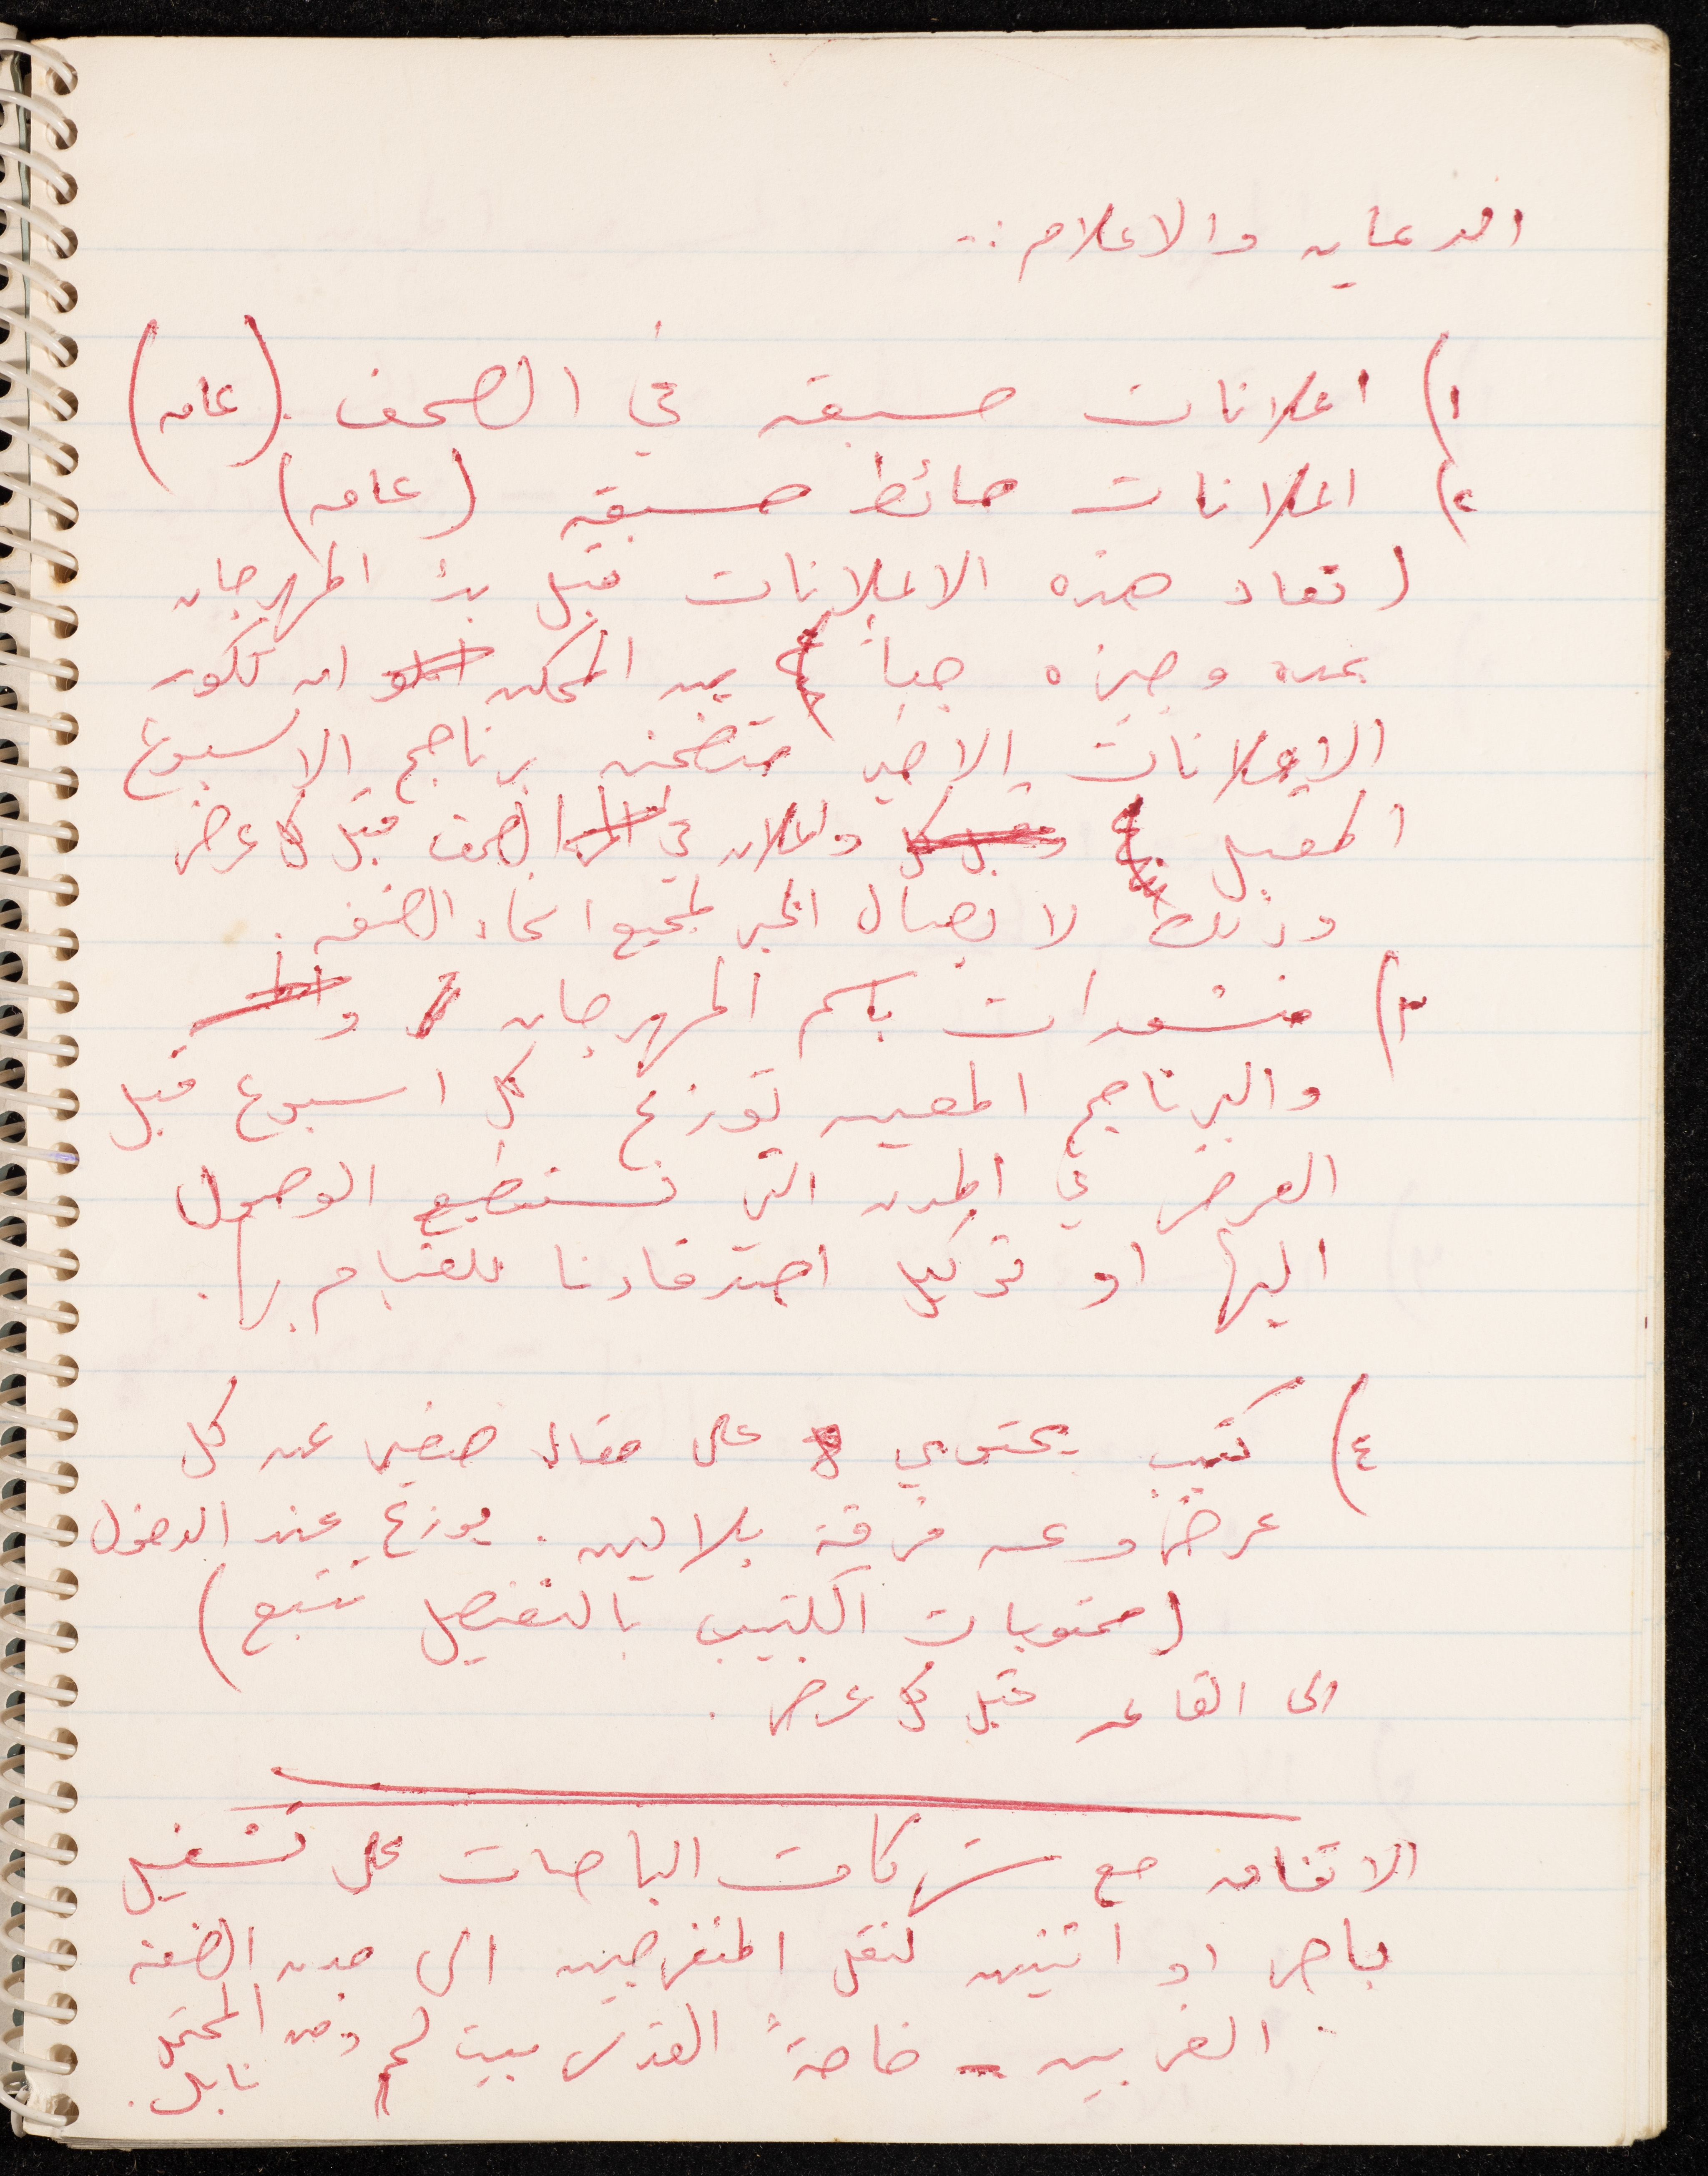 الدعايه والاعلام :-
١) اعلانات مسبقه في الصحف . (عامه)
٢) اعلانات حائط مسبقه (عامه)
( تعاد هذه الاعلانات قبل بدأ المهرجان
بمده وجيزه جداً من الممكن ان تكون
الاعلانات الاخيره متضمنه برنامج الاسبوع
المقبل واعلان في الصحف قبل كل عرض
وذلك لايصال الخبر لجميع انحاء الضفه .
٣) منشورات باسم المهرجان
والبرنامج المعين توزع كل اسبوع قبل
العرض في المدن التي نستطيع الوصول
اليها او توكيل اصدقاءنا للقيام بها .
٤) كتيب يحتوي على مقال صغير عن كل
عرض وعن فرقة بلالين . يوزع عند الدخول
(محتويات الكتيب بالتفصيل تتبع)
الى القاعه قبل كل عرض .
الاتفاق مع شركات الباصات على تشغيل
باص او اثنين لنقل المتفرجين الى مدن الضفه
الغربيه - خاصةً القدس بيت لحم ومن المحتمل
نابلس .